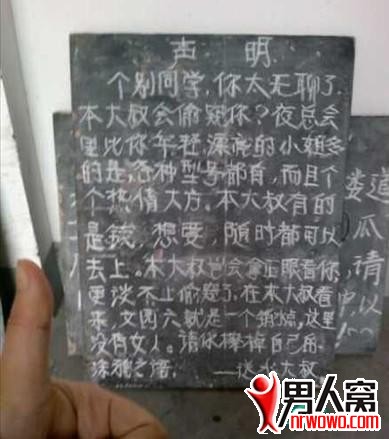 声 明
个别同学，你太无聊了.
本大叔会偷窥你？夜总会
里比你年轻漂亮的小姐多
的是，各种型号都有，而且个
个热情大方。本大叔有的
是钱，想要，随时都可以
去上。本大叔岂会拿正眼看你，
更谈不上偷窥了。在本大叔看
来，文四六就是一个锅炉，这里
没有女人。请你擦掉自己的
涂鸦之语.
大叔
道
娄 瓜
请
以
男人窝
nrwowo.com